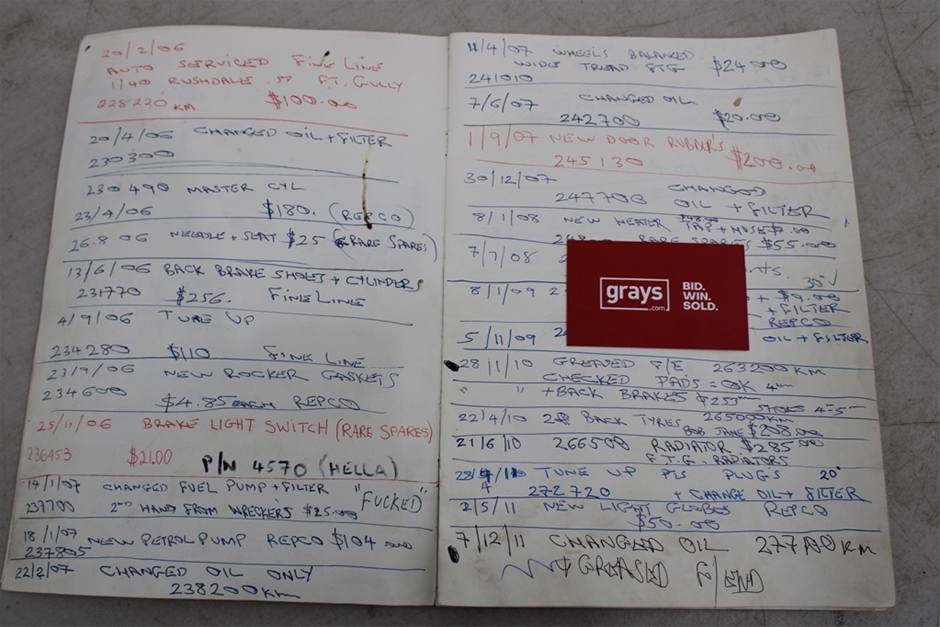 20/2/06
AUTO SERVICED FINE LINE
1/40 RUSHDALE ST FT. GULLY
228220 KM $100.00
20/4/06 CHANGED OIL + FILTER
230300
230490 MASTER CYL
23/4/06 $180. (REPCO)
26.8 06 NEEDLE + SEAT $25 (RARE SPARES)
13/6/06 BACK BRAKE SHOES + CYLINDERS
231770 $256. FINE LINE
4/9/06 TUNE UP
234280 $110 FINE LINE
23/9/06 NEW ROCKER GASKETS
234600
$4.85 EACH REPCO
25/11/06 BRAKE LIGHT SWITCH (RARE SPARES)
236453 $21.00 P/N 4570 (HELLA)
14/1/07 CHANGED FUEL PUMP + FILTER "FUCKED"
237700 2ND HAND FROM WRECKERS $25.00
18/1/07 NEW PETROL PUMP REPCO $104
237805
22/2/07 CHANGED OIL ONLY
238200km
11/4/07 WHEELS BALANCED
WIDE TREAD FTG $24.00
241010
7/6/07 CHANGED OIL
242700 $20.00
1/9/07 NEW DOOR RUBBER'S
245130 $200.00
30/12/07 CHANGED
247700 OIL + FILTER
8/1/08 NEW HEATER TAP + HOSE
RARE SPARES $55.00
7/7/08
8/1/09
+ FILTER
REPCO
grays
.com
BID.
WIN.
SOLD.
5/11/09 OIL + FILTER
28/11/10 GREASED F/E 263200KM
CHECKED PADS = OK 4mm
" " + BACK BRAKES SHOES 4-5mm
22/4/10 2 BACK TYRES 265000
BOB JANE $208.00
21/6/10 266500 RADIATOR $285.00
F.T.G. RADIATORS
TUNE UP PTS PLUGS 20°
272720 + CHANGE OIL + FILTER
2/5/11 NEW LIGHT GLOBES REPCO
$50.00
7/12/11 CHANGED OIL KM
+ GREASED F/END